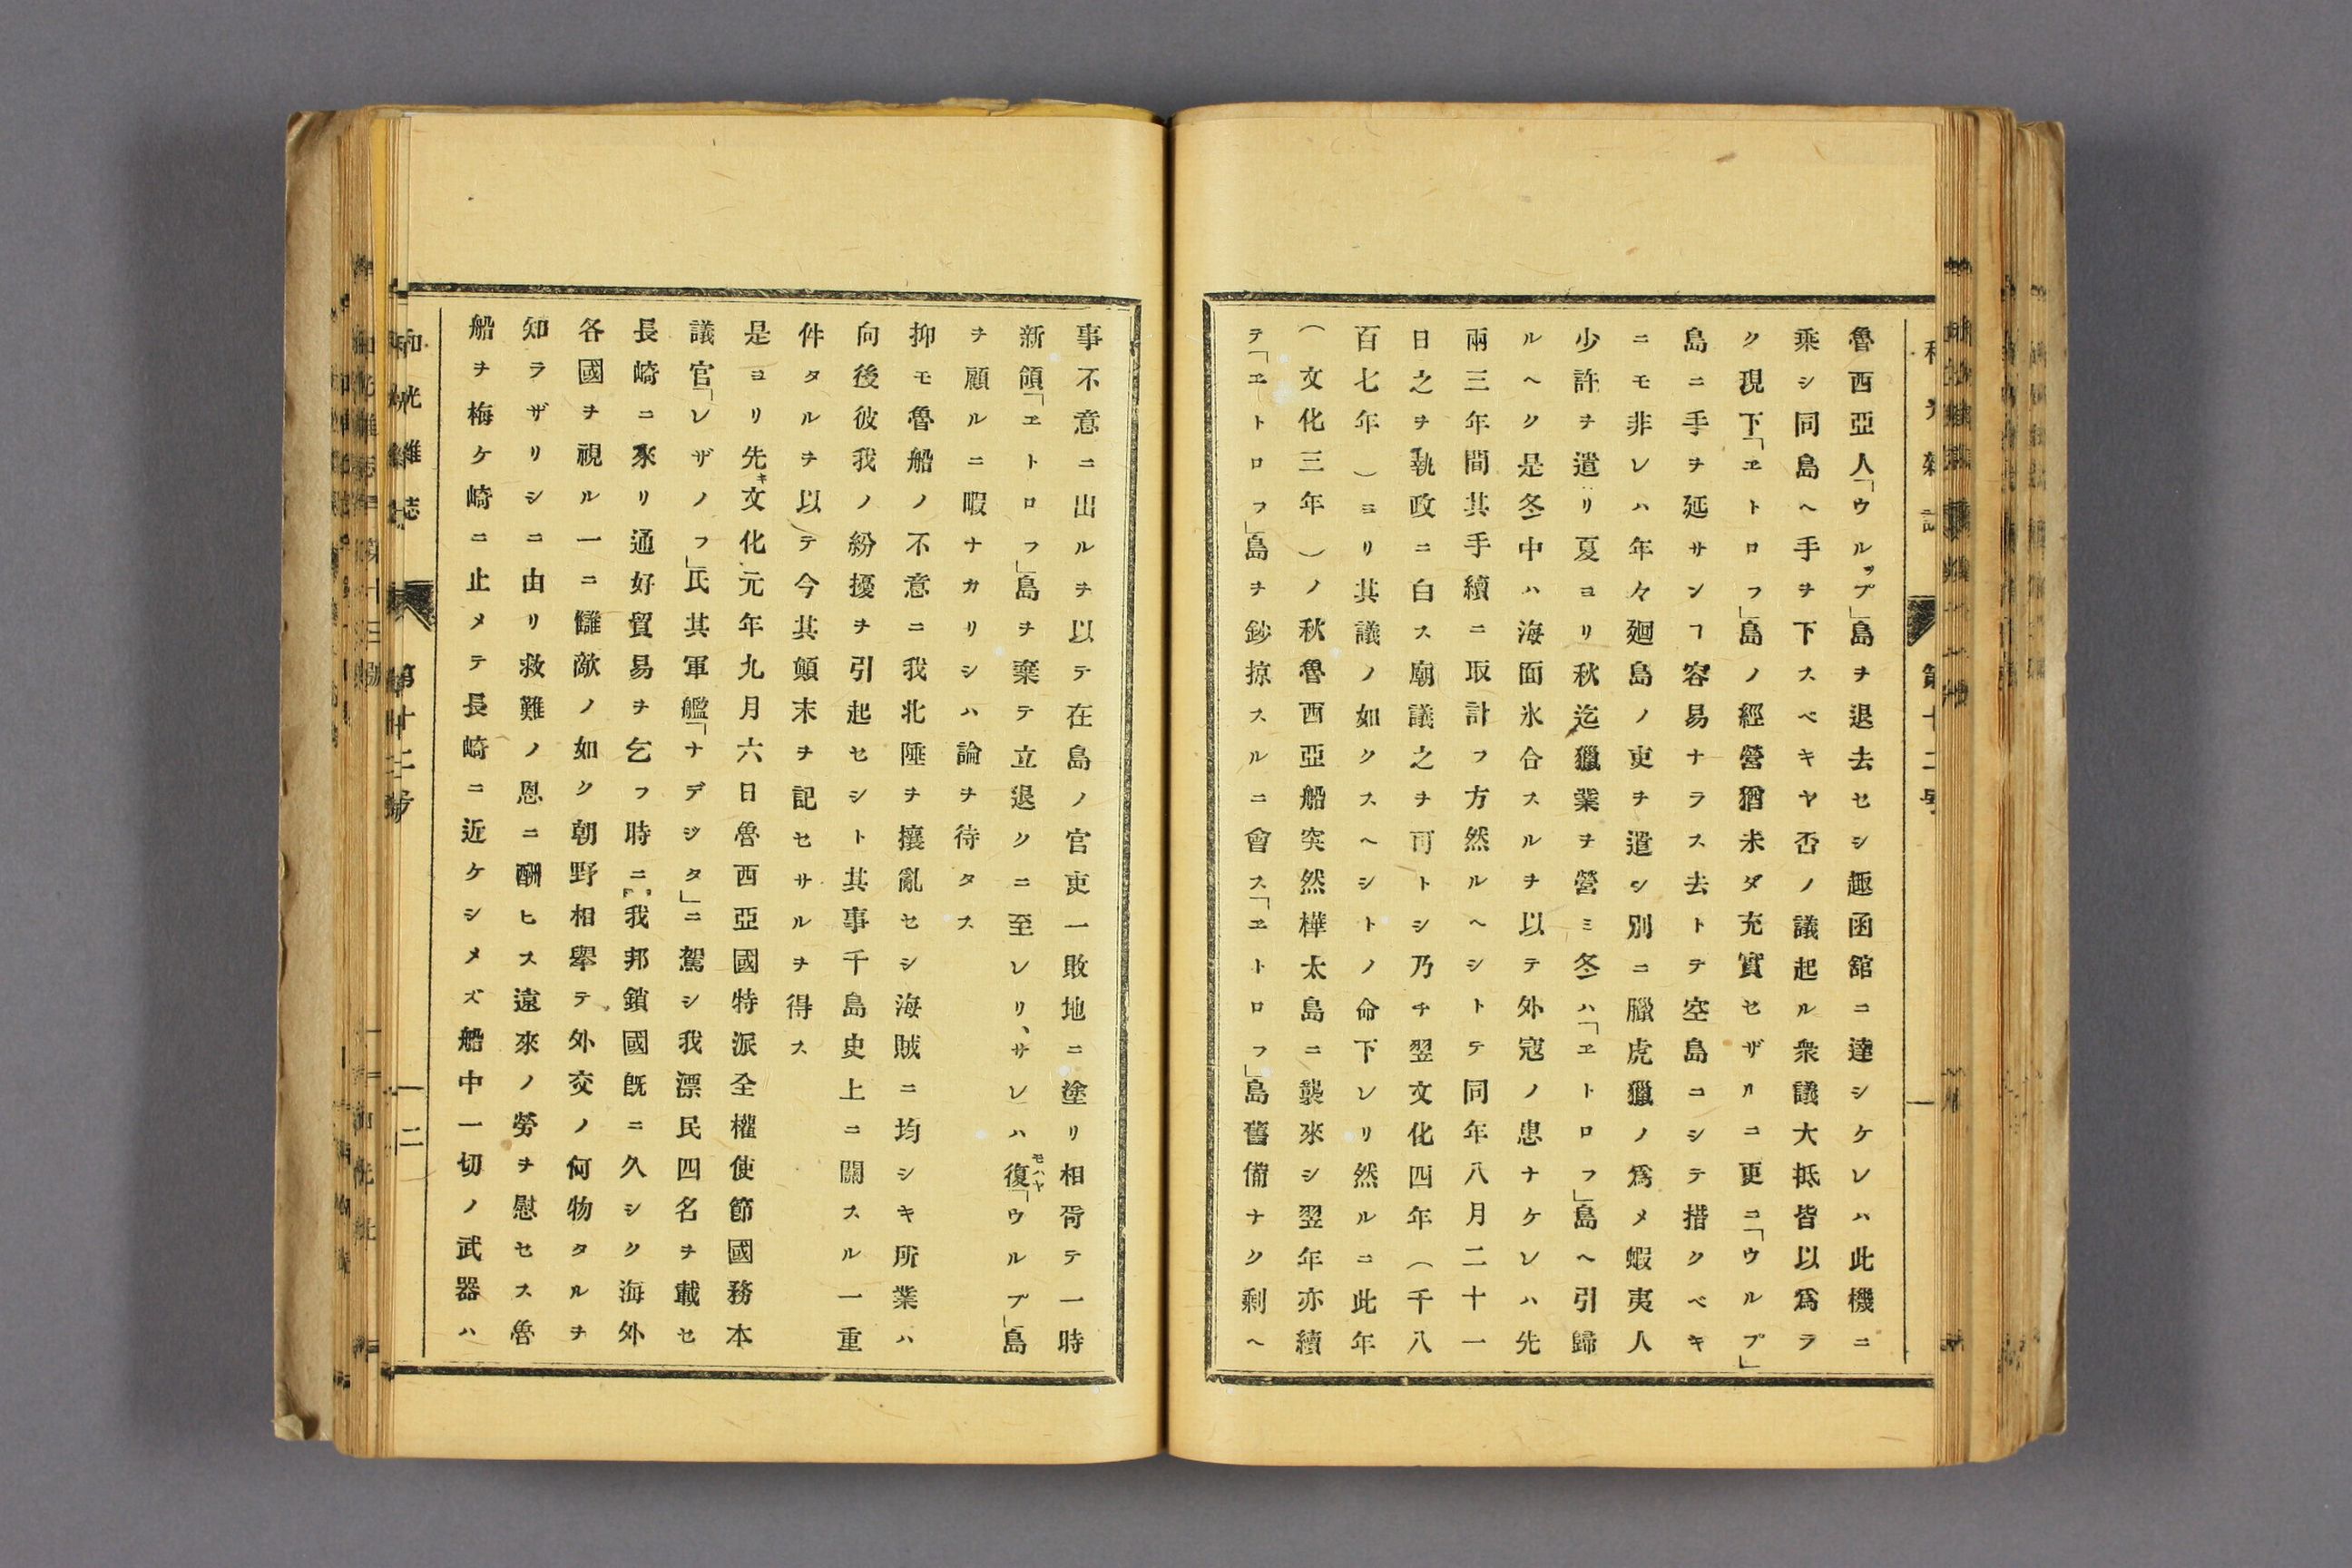 魯西亞人「ウルップ」島ヲ退去セシ趣函舘ニ達シケレハ此機ニ
乘シ同島ヘ手ヲ下スベキヤ否ノ議起ル衆議大抵皆以爲ラ
ク現下「ヱトロフ」島ノ經營猶未ダ充實セザルニ更ニ「ウルプ」
島ニ手ヲ延サンヿ容易ナラス去トテ空島ニシテ措クベキ
ニモ非レハ年々廻島ノ吏ヲ遣シ別ニ臘虎獵ノ爲メ蝦夷人
少許ヲ遣リ夏ヨリ秋迄獵業ヲ營ミ冬ハ「ヱトロフ」島ヘ引歸
ルヘク是冬中ハ海面氷合スルヲ以テ外寇ノ患ナケレハ先
兩三年間其手續ニ取計フ方然ルヘシトテ同年八月二十一
日之ヲ執政ニ白ス廟議之ヲ可トシ乃チ翌文化四年(千八
百七年)ヨリ其議ノ如クスヘシトノ命下レリ然ルニ此年
(文化三年)ノ秋魯西亞船突然樺太島ニ襲來シ翌年亦續
テ「ヱトロフ」島ヲ鈔掠スルニ會ス「ヱトロフ」島舊備ナク剩ヘ
事不意ニ出ルヲ以テ在島ノ官吏一敗地ニ塗リ相胥テ一時
新領「ヱトロフ」島ヲ棄テ立退クニ至レリ、サレハ復モハヤ「ウルプ」島
ヲ顧ルニ暇ナカリシハ論ヲ待タス
抑モ魯船ノ不意ニ我北陲ヲ攘亂セシ海賊ニ均シキ所業ハ
向後彼我ノ紛擾ヲ引起セシト其事千島史上ニ關スル一重
件タルヲ以テ今其顛末ヲ記セサルヲ得ス
是ヨリ先キ文化元年九月六日魯西亞國特派全權使節國務本
議官「レザノフ」氏其軍艦「ナデジタ」ニ駕シ我漂民四名ヲ載セ
長崎ニ來リ通好貿易ヲ乞フ時ニ我邦鎖國既ニ久シク海外
各國ヲ視ル一ニ讎敵ノ如ク朝野相擧テ外交ノ何物タルヲ
知ラザリシニ由リ救難ノ恩ニ酬ヒス遠來ノ勞ヲ慰セス魯
船ヲ梅ケ崎ニ止メテ長崎ニ近ケシメズ船中一切ノ武器ハ
和光雜誌 第十二号 二